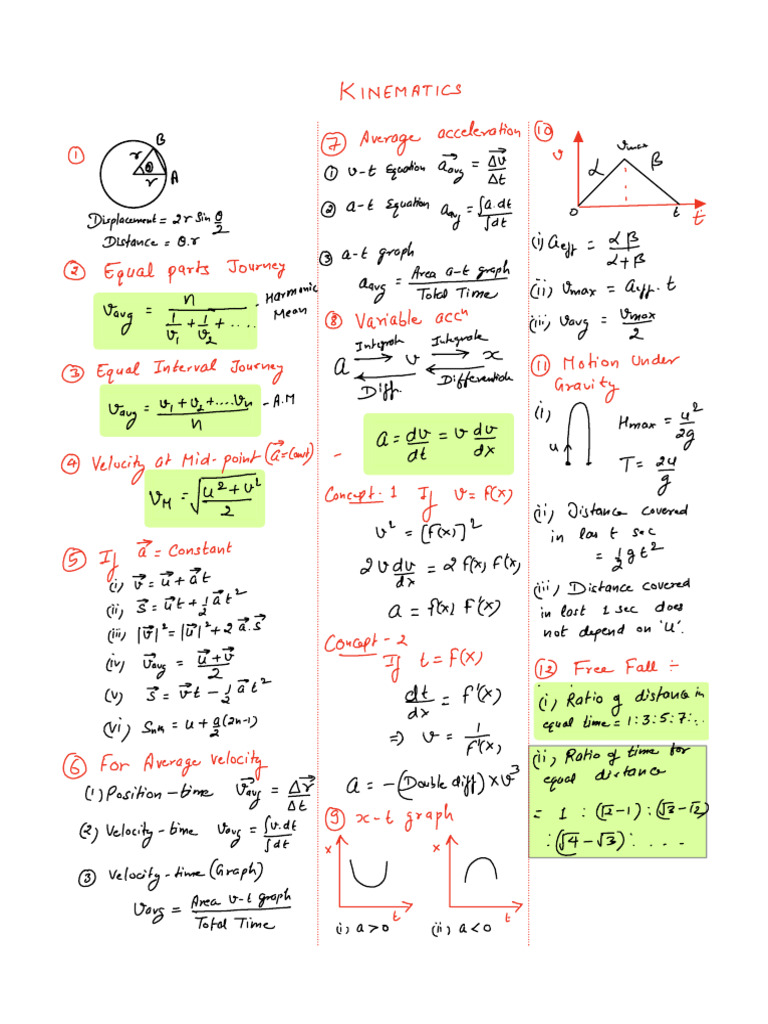 KINEMATICS
①
B
r
θ
r
A
Displacement = 2r sin θ/2
Distance = θ.r
② Equal parts Journey
v_avg = n / (1/v₁ + 1/v₂ + ....) - Harmonic Mean
③ Equal Interval Journey
v_avg = (v₁ + v₂ + .... vₙ) / n - A.M
④ Velocity at Mid-point (a⃗ = Const)
V_M = √((u² + v²)/2)
⑤ If a⃗ = Constant
(i) v⃗ = u⃗ + a⃗t
(ii) s⃗ = u⃗t + ½ a⃗t²
(iii) |v⃗|² = |u⃗|² + 2a⃗.s⃗
(iv) v⃗_avg = (u⃗ + v⃗)/2
(v) s⃗ = v⃗t - ½ a⃗t²
(vi) S_nth = u + a/2 (2n-1)
⑥ For Average Velocity
(1) Position-time v⃗_avg = Δr⃗/Δt
(2) Velocity-time v_avg = ∫v.dt / ∫dt
③ Velocity-time (Graph)
v_avg = Area v-t graph / Total Time
⑦ Average acceleration
① v-t Equation a⃗_avg = Δv⃗/Δt
② a-t Equation a_avg = ∫a.dt / ∫dt
③ a-t graph
a_avg = Area a-t graph / Total Time
⑧ Variable accⁿ
Integrate Integrate
A v x
Diff. Differention
-
a = dv/dt = v dv/dx
Concept-1 If v = f(x)
v² = [f(x)]²
2v dv/dx = 2 f(x) f'(x)
a = f(x) f'(x)
Concept-2
If t = f(x)
dt/dx = f'(x)
⇒ v = 1/f'(x)
A = -(Double diff) × v³
⑨ x-t graph
x x
t t
(i) a > 0 (ii) a < 0
⑩
v
v_max
α β
0 t t
(i) A_eff = αβ / (α+β)
(ii) v_max = a_eff. t
(iii) v_avg = v_max / 2
⑪ Motion Under
Gravity
(i) H_max = u²/2g
u
T = 2u/g
(ii) Distance covered
in las t sec
= ½ g t²
(iii) Distance covered
in last 1 sec does
not depend on 'u'.
⑫ Free Fall ÷
(i) Ratio of distance in
equal time = 1:3:5:7:..
(ii) Ratio of time for
equal distance
= 1 : (√2-1) : (√3-√2)
: (√4-√3) : ....